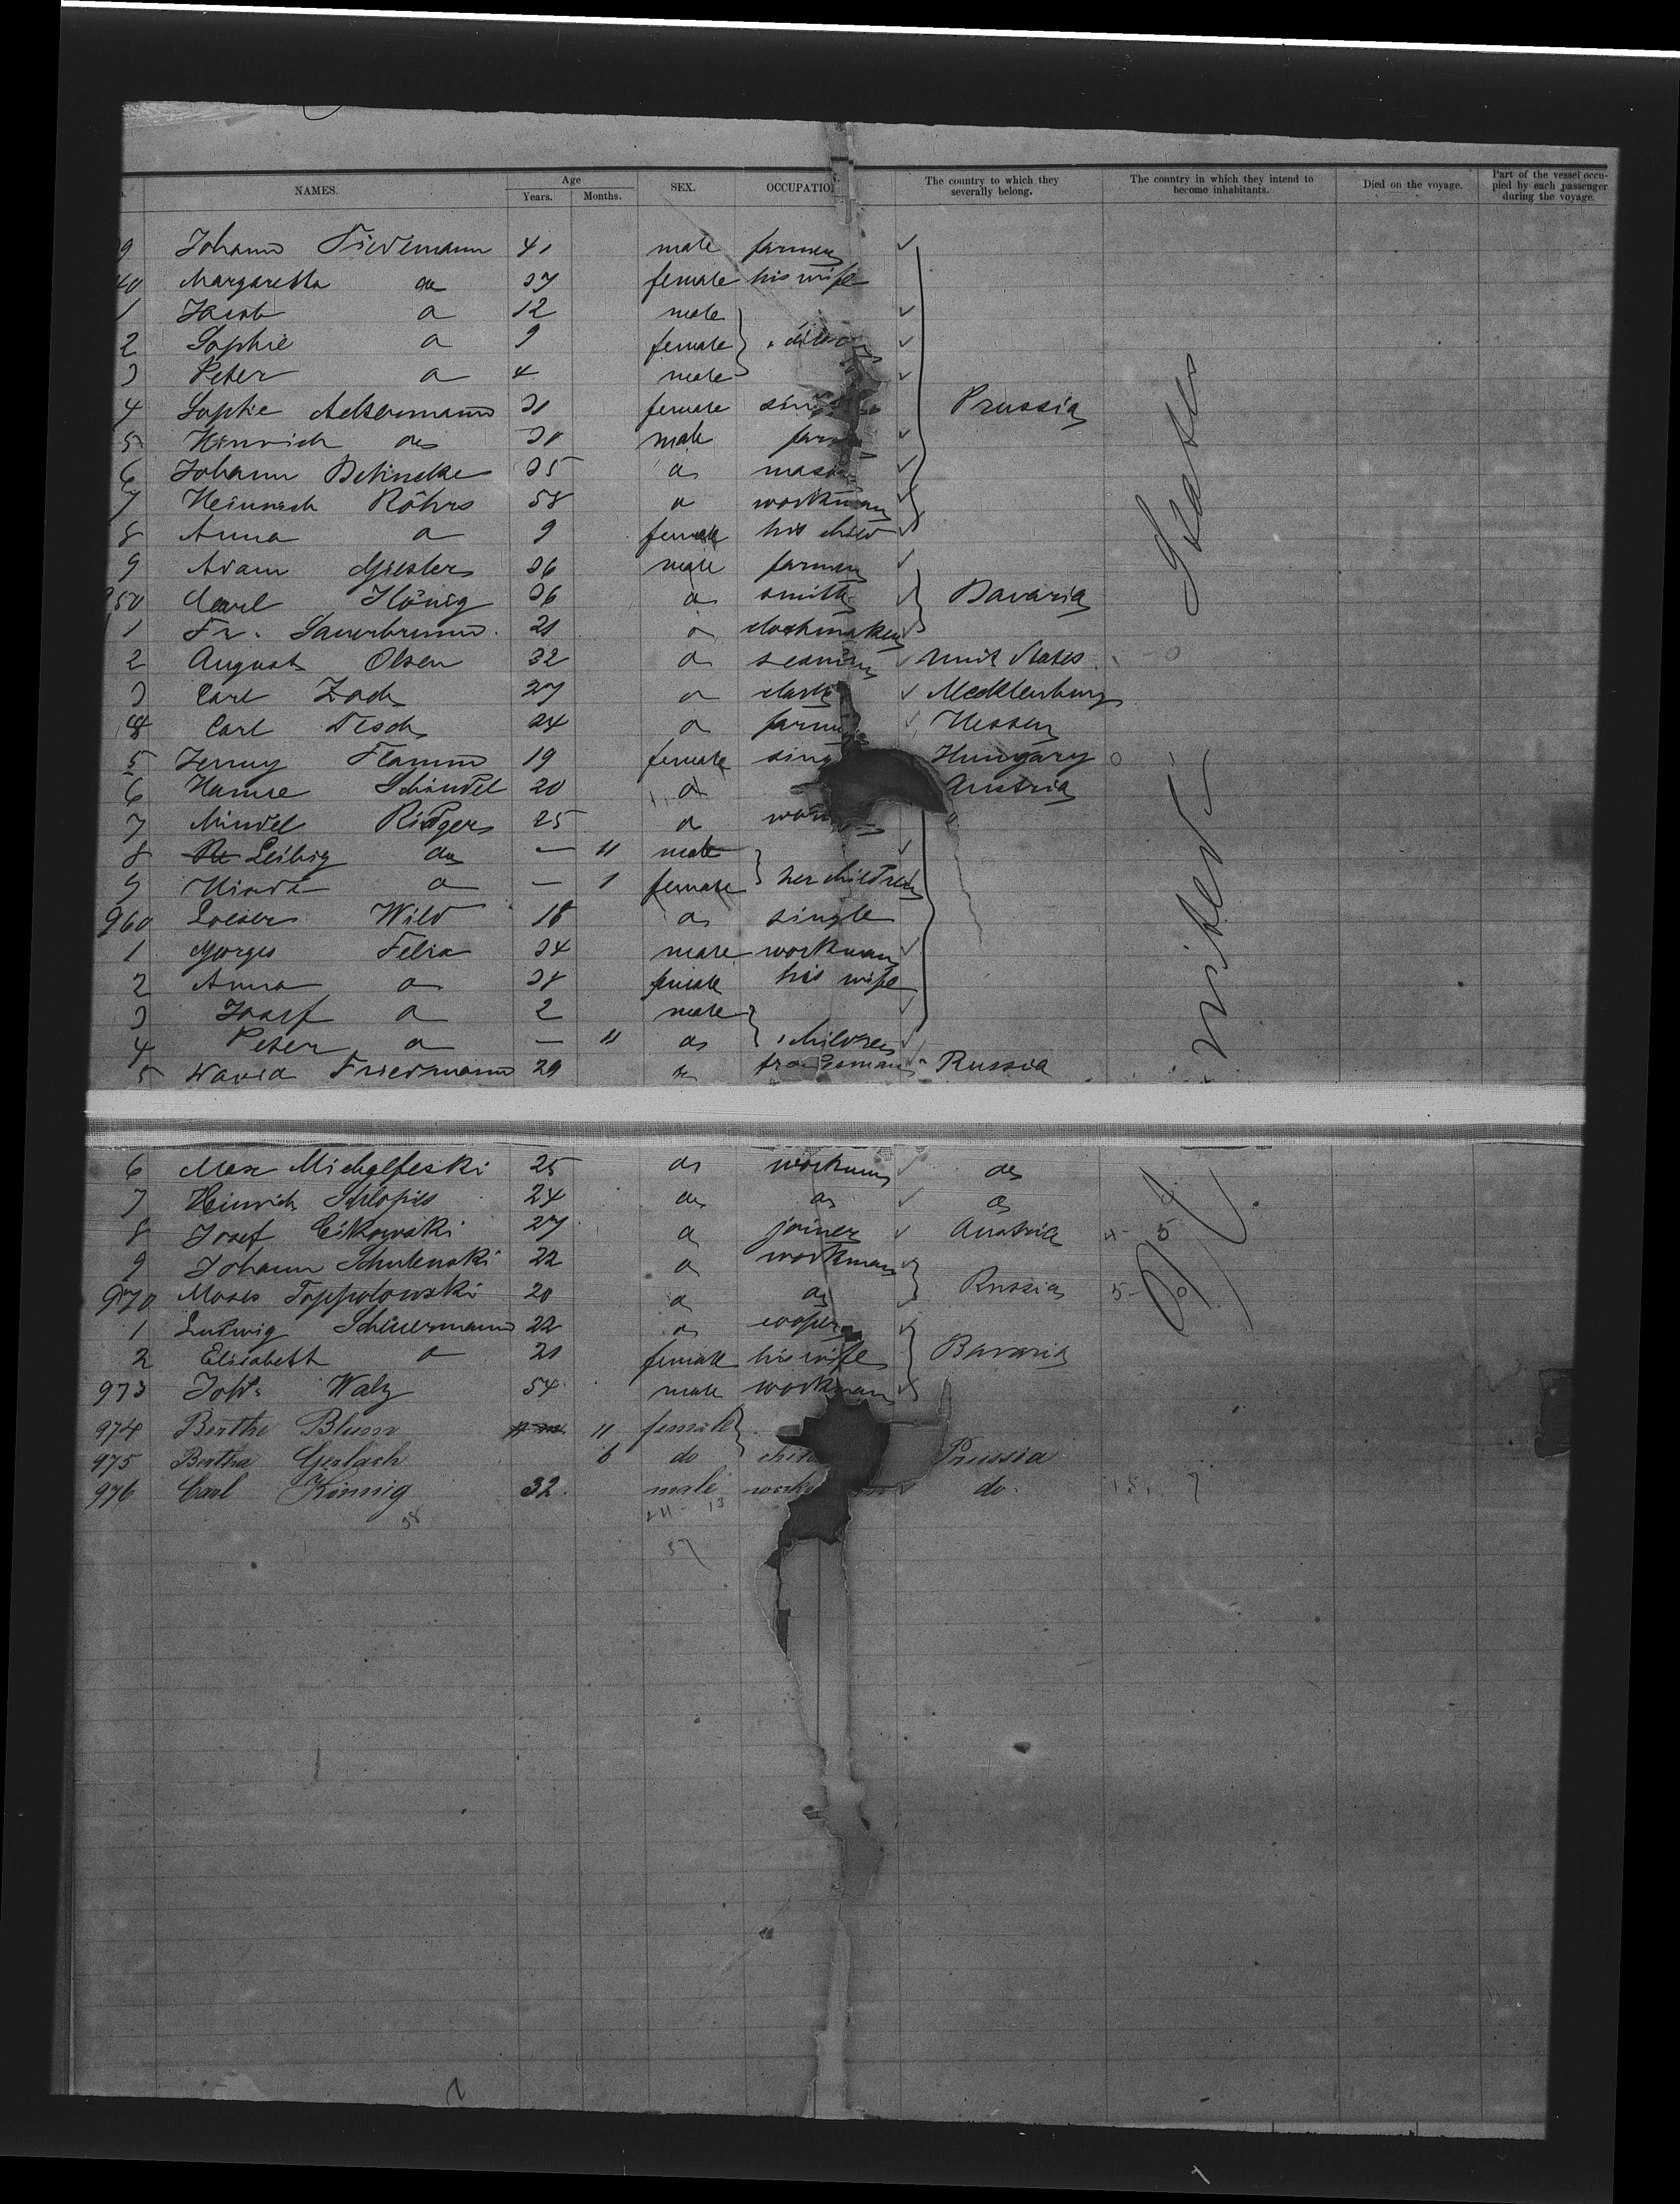 NAMES. Age Years. Months. SEX. OCCUPATION. The country to which they severally belong. The country in which they intend to become inhabitants. Died on the voyage. Part of the vessel occupied by each passenger during the voyage.
9 Johann Tiedemann 41 male farmer
40 Margaretha do 37 female his wife
1 Jacob do 12 male
2 Sophie do 9 female children
3 Peter do 4 male
4 Sophie Ackermann 31 female Prussia
5 Hinrich do 30 male
6 Johann Behncke 35 do mason
7 Heinrich Röhrs 58 do workman
8 Anna do 9 female his child
9 Adam Giesler 36 male farmer
950 Carl König 36 do smith Bavaria
1 Fr. Sauerbrunn 21 do clockmaker
2 August Olsen 32 do seaman Unit States
3 Carl Zach 27 do Mecklenburg
4 Carl Tesch 24 do farmer Hessen
5 Jenny Flamm 19 female Hungary
6 Hanne Schindel 20 do Austria
7 Mindel Ridger 25 do "
8 Leibig do — 11 male
9 Hinde do — 1 female her children
960 Wild 18 do single
1 Felia 34 male workman
2 Anna do 28 female his wife
3 Josef do 2 male
4 Peter do — 11 do children
5 David Friedmann 29 do tradesman Russia
United States
6 Max 25 do workman do
7 Heinrich 24 do do do
8 Josef Cikowski 27 do joiner Austria
9 Johann Schulenski 22 do workman
970 Moses Toppolowski 20 do do Russia
1 Ludwig Scheuermann 22 do cooper
2 Elisabeth do 21 female his wife Bavaria
973 Joh. Walz 54 male workman
974 Berthe Blum 11 female
975 Bertha Gerlach 6 do Prussia
976 Carl Kinnig 32 male do.